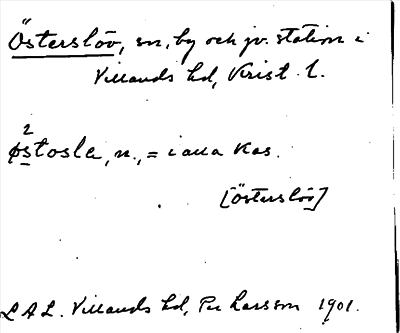 Östersløv, sn, by och jv. station i
Villands hd, Krist. l.
2
østosla, n., = i alla kas.
[Östersløv]
L A L. Villands hd, Per Larsson 1901.